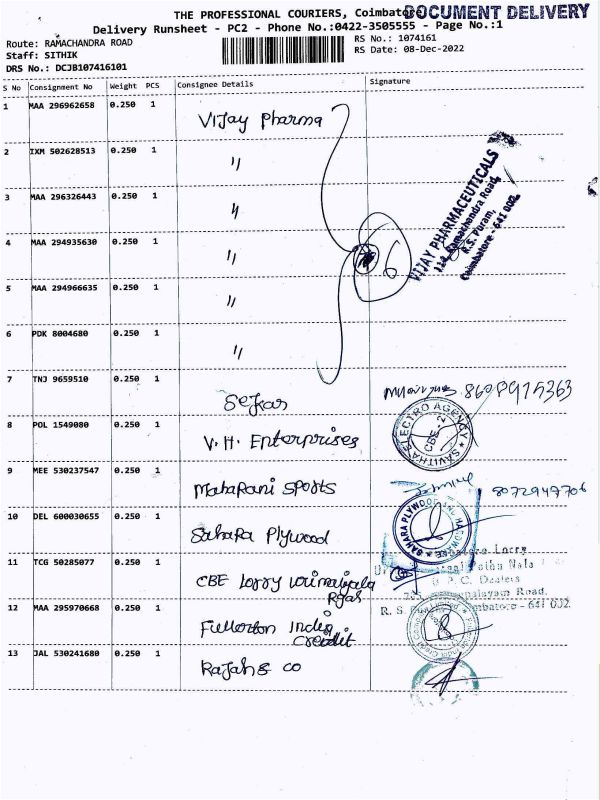 THE PROFESSIONAL COURIERS, Coimbatore DOCUMENT DELIVERY
Delivery Runsheet - PC2 - Phone No.:0422-3505555 - Page No.:1
Route: RAMACHANDRA ROAD
RS No.: 1074161
Staff: SITHIK
RS Date: 08-Dec-2022
DRS No.: DCJB107416101
S No Consignment No Weight PCS Consignee Details Signature
1 MAA 296962658 0.250 1 Vijay Pharma
2 IXM 502628513 0.250 1 "
3 MAA 296326443 0.250 1 "
4 MAA 294935630 0.250 1 " 6
5 MAA 294966635 0.250 1 "
6 PDK 8004680 0.250 1 "
VIJAY PHARMACEUTICALS
Ramachandra Road,
R.S. Puram,
Coimbatore - 641 002.
7 TNJ 9659510 0.250 1 Sekar
8 POL 1549080 0.250 1 V.H. Enterprises
SAVITHA ELECTRO AGENCY
CBE-2
9 MEE 530237547 0.250 1 Maharani Sports 8072947706
10 DEL 600030655 0.250 1 Sahara Plywood
SAHARA PLYWOOD AND HARDWARE
11 TCG 50285077 0.250 1 CBE Lorry
Lorry
Nala
P.C. Dealers
Road,
R. S. Coimbatore - 641 002
12 MAA 295970668 0.250 1 Fullerton India
Credit
13 JAL 530241680 0.250 1 Rajah & Co